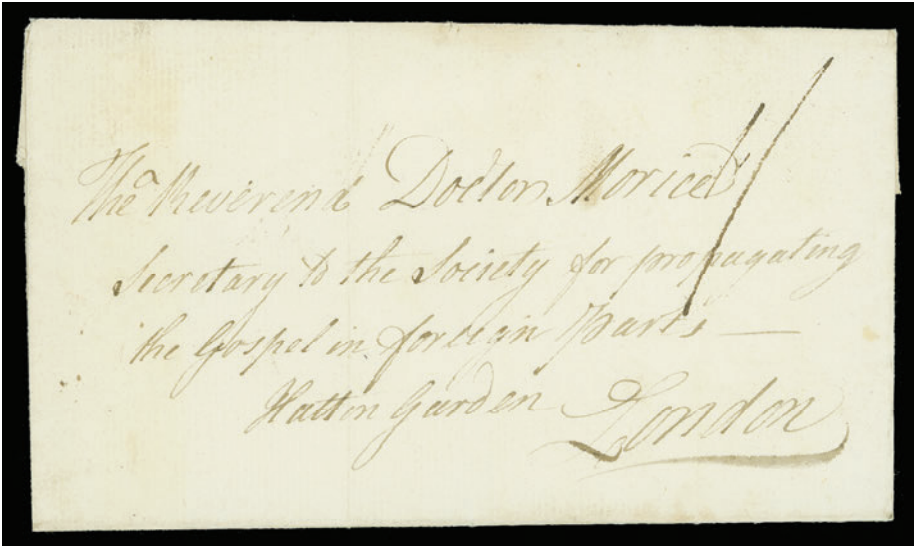 The Reverend Doctor Morice
Secretary to the Society for propagating
the Gospel in foreign Parts —
Hatton Garden London